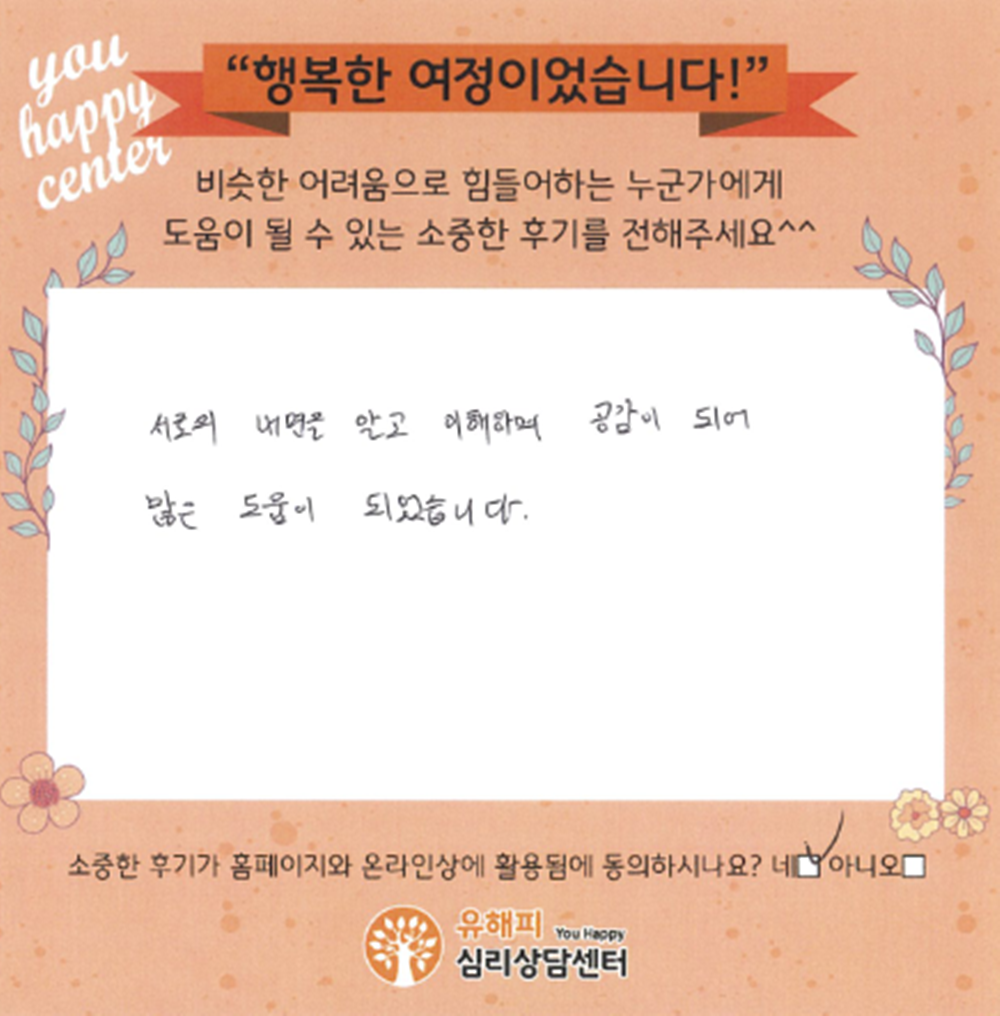 you
happy
center
“행복한 여정이었습니다!”
비슷한 어려움으로 힘들어하는 누군가에게
도움이 될 수 있는 소중한 후기를 전해주세요^^
서로의 내면을 알고 이해하며 공감이 되어
많은 도움이 되었습니다.
소중한 후기가 홈페이지와 온라인상에 활용됨에 동의하시나요? 네 아니오
유해피 You Happy
심리상담센터